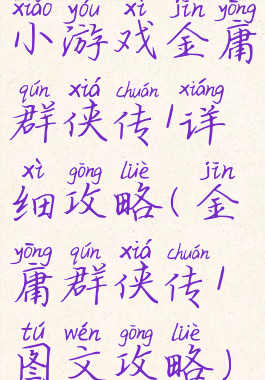 xiǎo yóu xì jīn yōng
小游戏金庸
qún xiá chuán xiáng
群侠传1详
xì gōng lüè jīn
细攻略(金
yōng qún xiá chuán
庸群侠传1
tú wén gōng lüè
图文攻略)